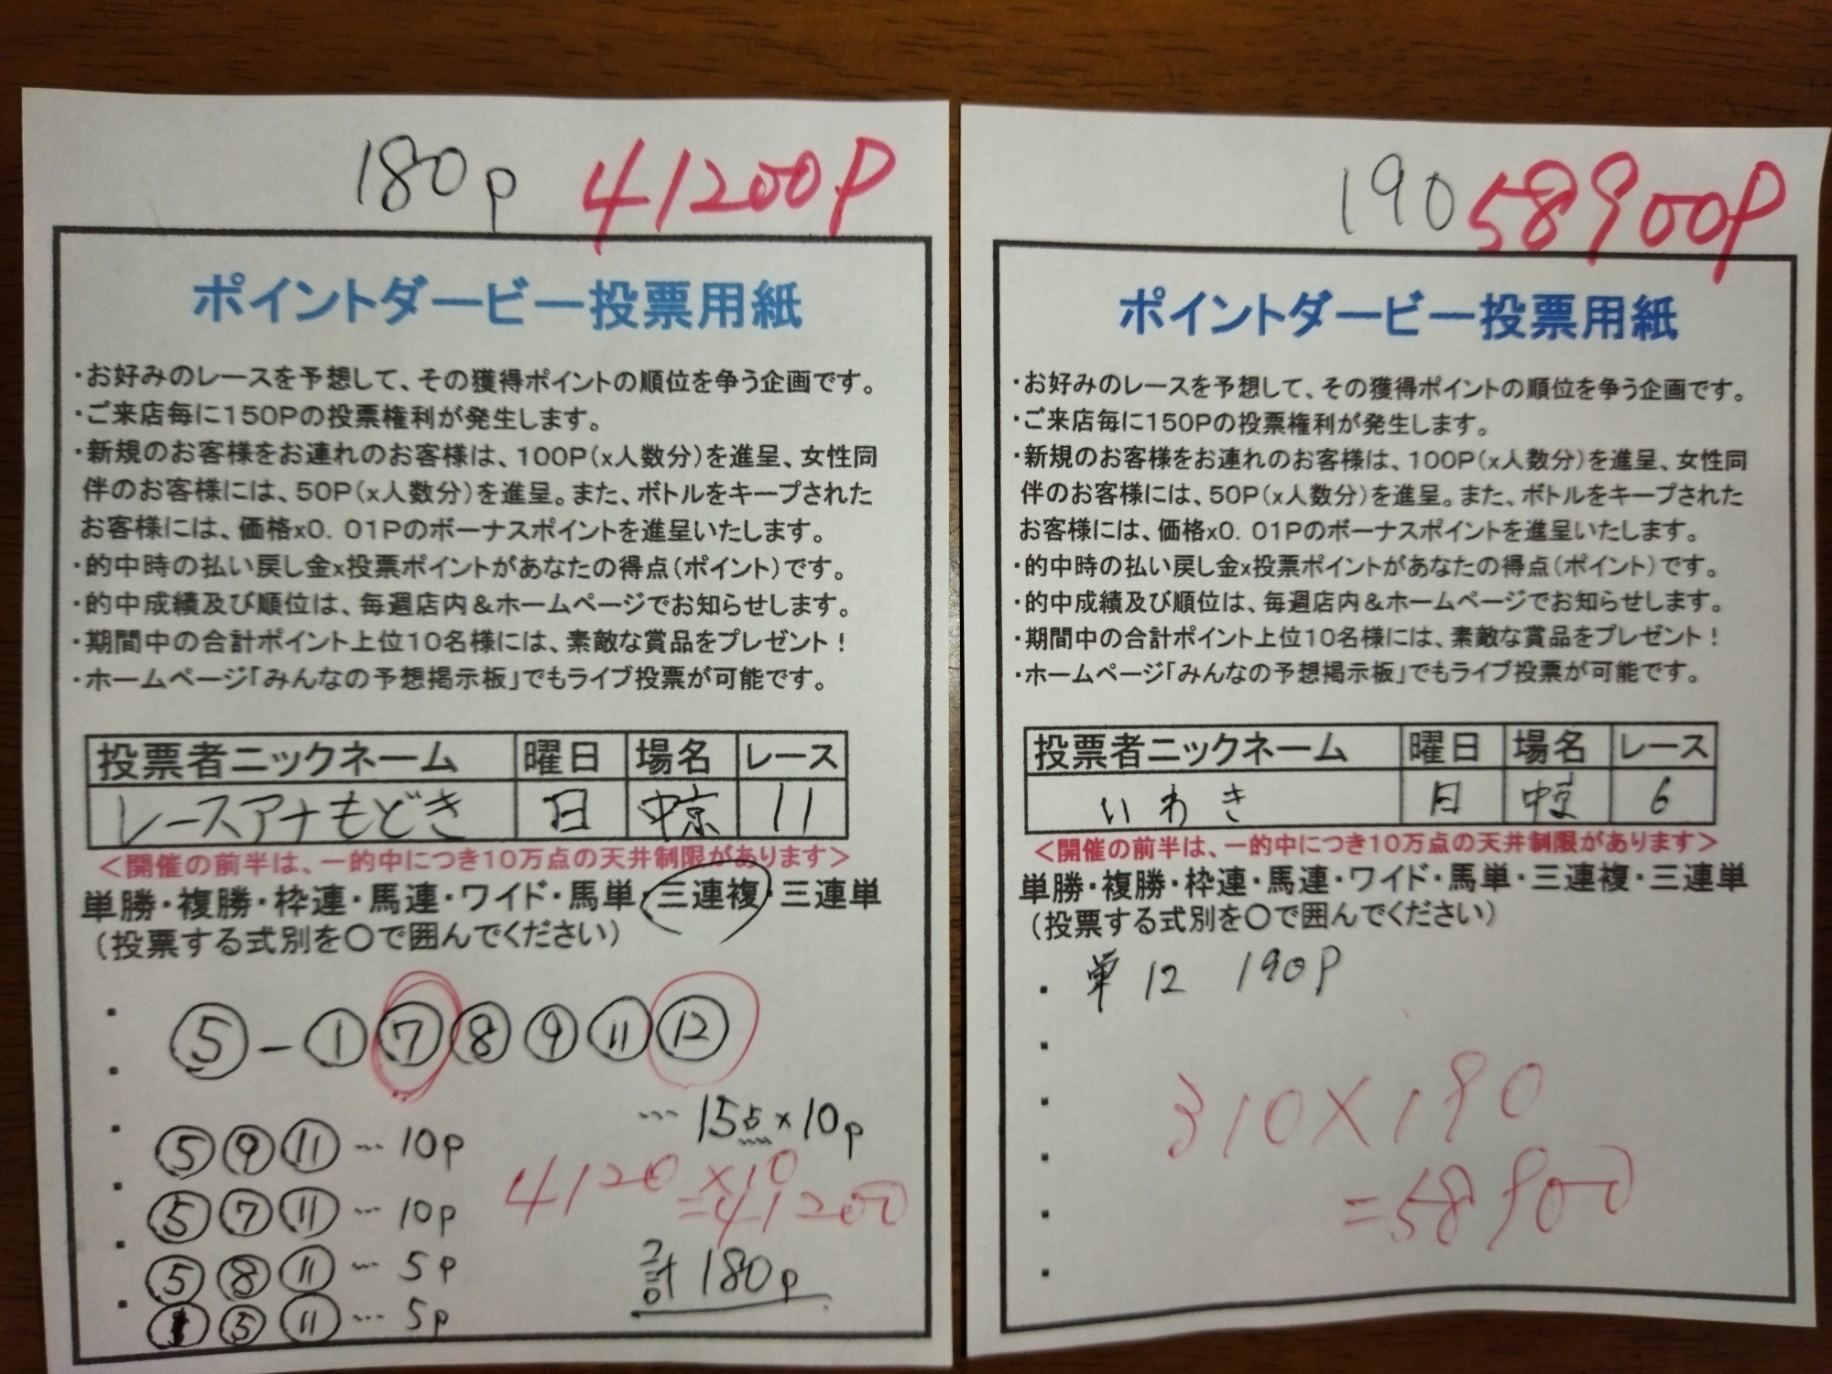 180p 41200P
ポイントダービー投票用紙
・お好みのレースを予想して、その獲得ポイントの順位を争う企画です。
・ご来店毎に150Pの投票権利が発生します。
・新規のお客様をお連れのお客様は、100P(x人数分)を進呈、女性同
伴のお客様には、50P(x人数分)を進呈。また、ボトルをキープされた
お客様には、価格x0.01Pのボーナスポイントを進呈いたします。
・的中時の払い戻し金x投票ポイントがあなたの得点(ポイント)です。
・的中成績及び順位は、毎週店内&ホームページでお知らせします。
・期間中の合計ポイント上位10名様には、素敵な賞品をプレゼント!
・ホームページ「みんなの予想掲示板」でもライブ投票が可能です。
投票者ニックネーム 曜日 場名 レース
レースアナもどき 日 中京 11
<開催の前半は、一的中につき10万点の天井制限があります>
単勝・複勝・枠連・馬連・ワイド・馬単・三連複・三連単
(投票する式別を〇で囲んでください)
⑤-①⑦⑧⑨⑪⑫
… 15点×10p
⑤⑨⑪…10p
4120×10
=41200
⑤⑦⑪…10p
⑤⑧⑪…5p
計180p
①⑤⑪…5p
190 58900P
ポイントダービー投票用紙
・お好みのレースを予想して、その獲得ポイントの順位を争う企画です。
・ご来店毎に150Pの投票権利が発生します。
・新規のお客様をお連れのお客様は、100P(x人数分)を進呈、女性同
伴のお客様には、50P(x人数分)を進呈。また、ボトルをキープされた
お客様には、価格x0.01Pのボーナスポイントを進呈いたします。
・的中時の払い戻し金x投票ポイントがあなたの得点(ポイント)です。
・的中成績及び順位は、毎週店内&ホームページでお知らせします。
・期間中の合計ポイント上位10名様には、素敵な賞品をプレゼント!
・ホームページ「みんなの予想掲示板」でもライブ投票が可能です。
投票者ニックネーム 曜日 場名 レース
いわき 日 中京 6
<開催の前半は、一的中につき10万点の天井制限があります>
単勝・複勝・枠連・馬連・ワイド・馬単・三連複・三連単
(投票する式別を〇で囲んでください)
・単 12 190P
310×190
=58900